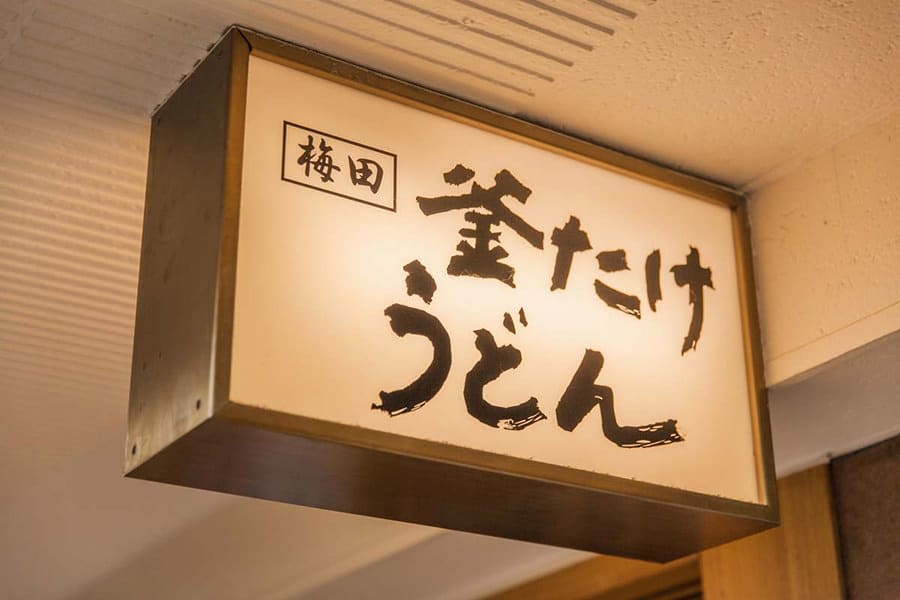 梅田
釜たけ
うどん